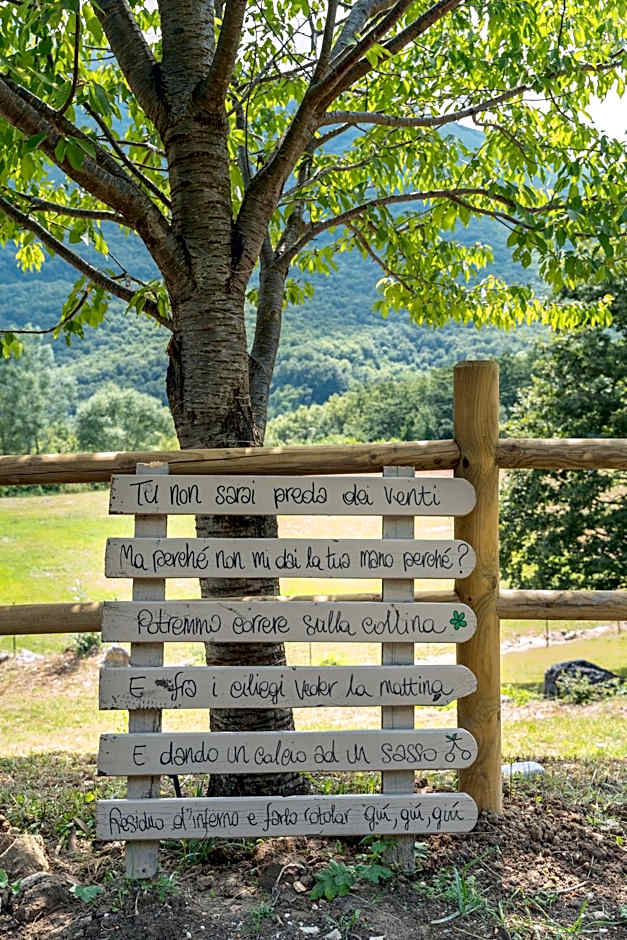 Tu non sarai preda dei venti
Ma perché non mi dai la tua mano perché?
Potremmo correre sulla collina
E fra i ciliegi veder la mattina
E dando un calcio ad un sasso
Residuo d'inferno e farlo rotolar giú, giú, giú